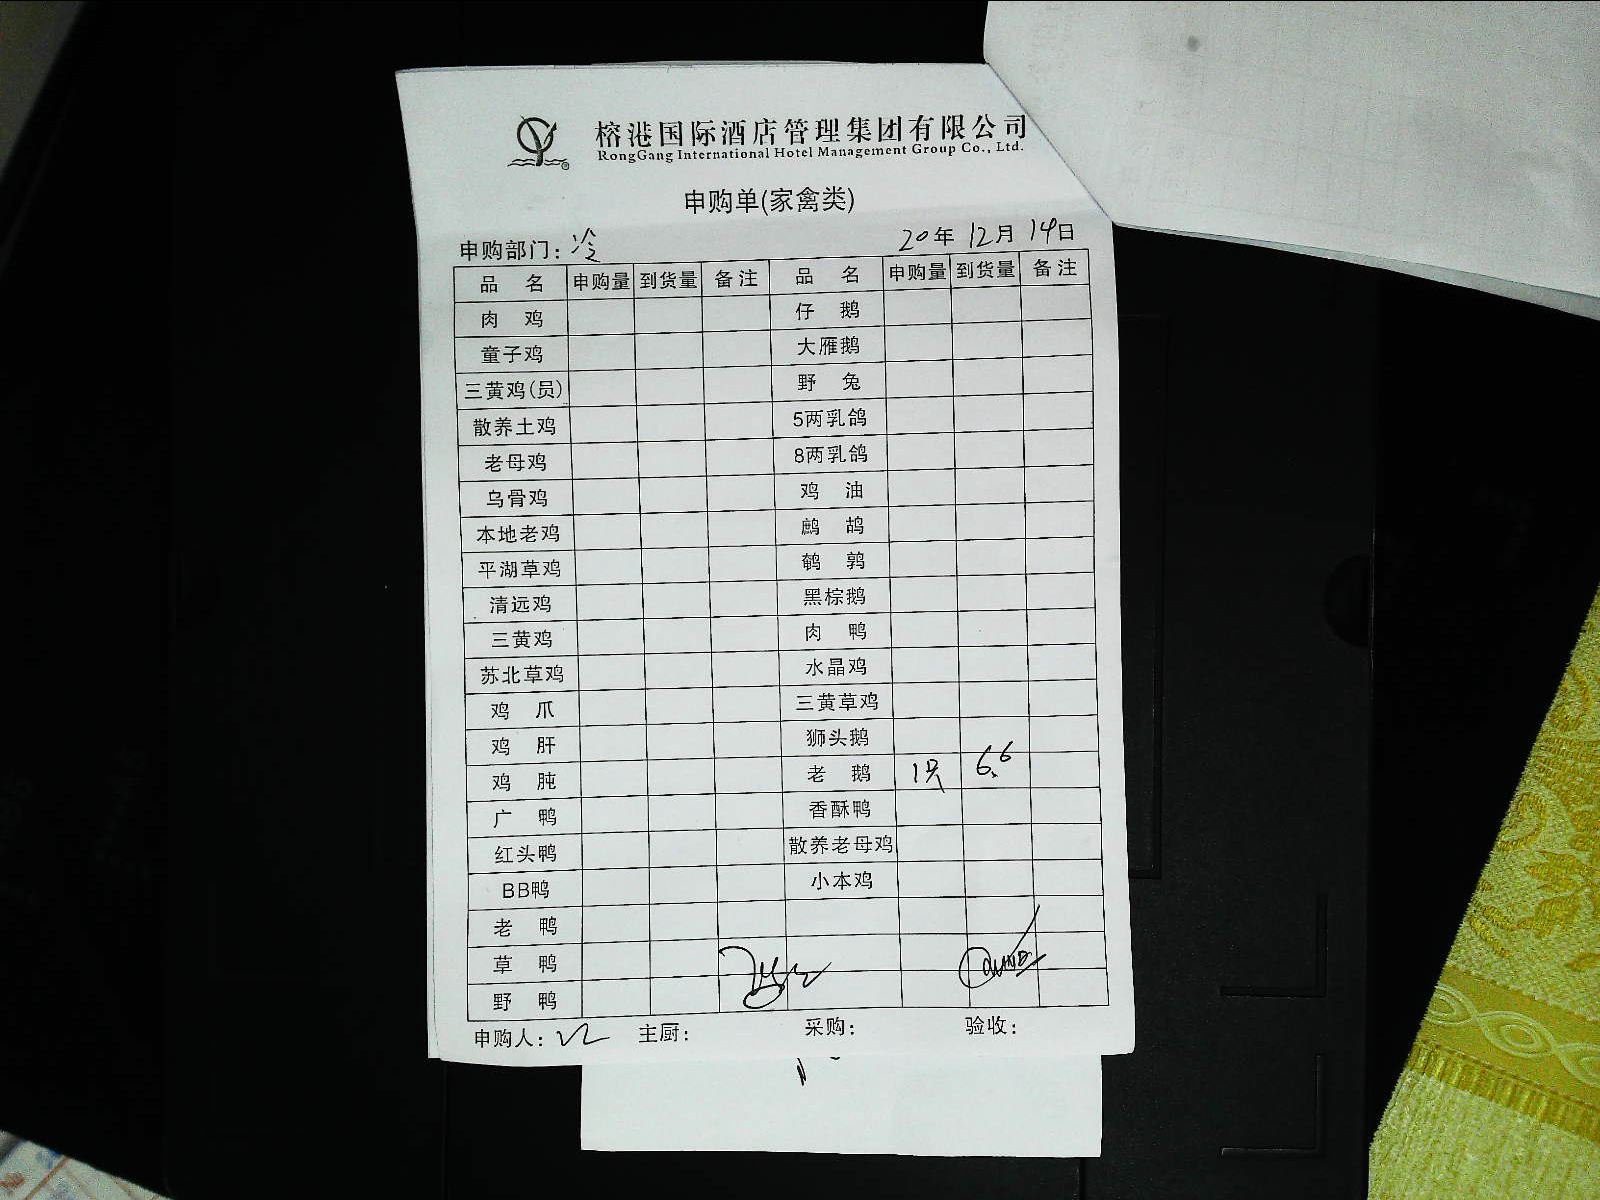 榕港国际酒店管理集团有限公司
RongGang International Hotel Management Group Co., Ltd.
申购单(家禽类)
申购部门: 冷 20年 12月 14日
品 名 申购量 到货量 备注 品 名 申购量 到货量 备注
肉 鸡 仔 鹅
童子鸡 大雁鹅
三黄鸡(员) 野 兔
散养土鸡 5两乳鸽
老母鸡 8两乳鸽
乌骨鸡 鸡 油
本地老鸡 鹧 鸪
平湖草鸡 鹌 鹑
清远鸡 黑棕鹅
三黄鸡 肉 鸭
苏北草鸡 水晶鸡
鸡 爪 三黄草鸡
鸡 肝 狮头鹅
鸡 肫 老 鹅 1只 6.6
广 鸭 香酥鸭
红头鸭 散养老母鸡
BB鸭 小本鸡
老 鸭
草 鸭
野 鸭
申购人: 主厨: 采购: 验收: